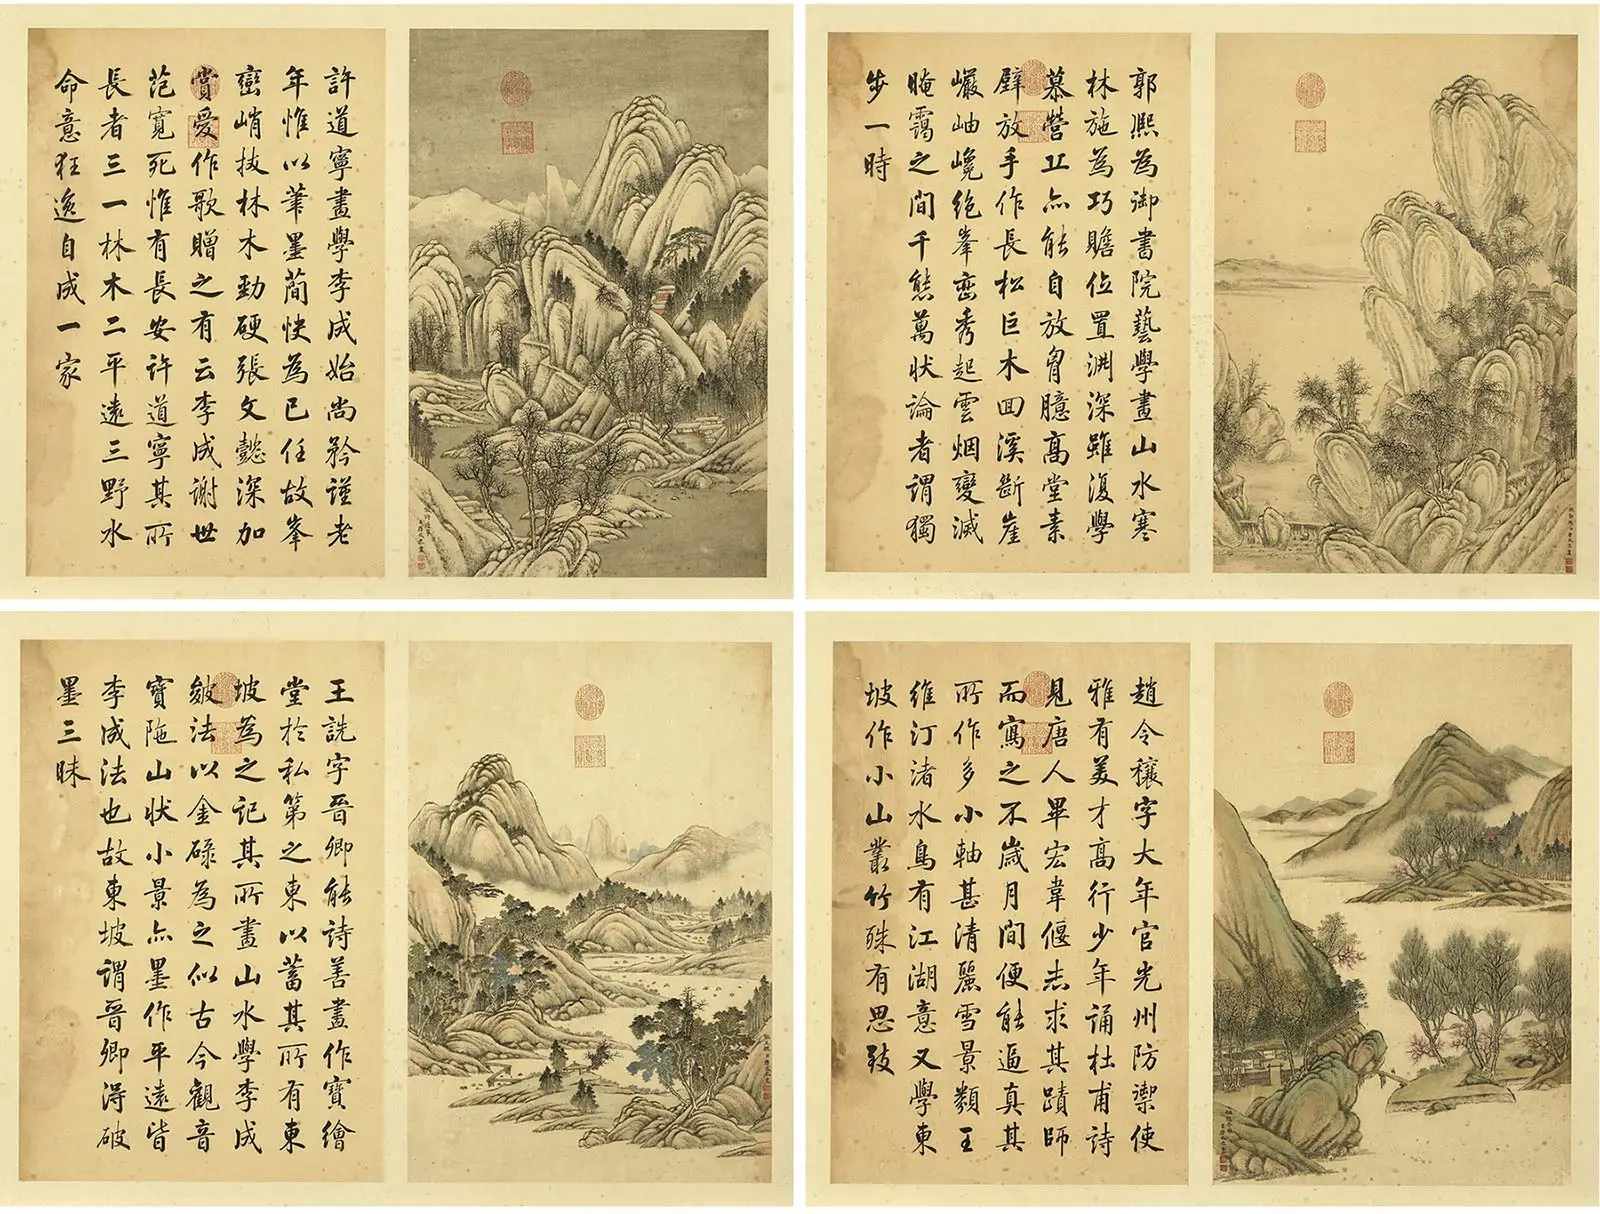 許道寧畫學李成始尚矜謹老
年惟以筆墨簡快為己任故峯
巒峭拔林木勁硬張文懿深加
賞愛作歌贈之有云李成謝世
范寬死惟有長安許道寧其所
長者三一林木二平遠三野水
命意狂逸自成一家
郭熙為御書院藝學畫山水寒
林施為巧贍位置淵深雖復學
慕營丘亦能自放胷臆高堂素
壁放手作長松巨木囬溪斷崖
巖岫巉絶峯巒秀起雲烟變滅
晻靄之間千態萬狀論者謂獨
步一時
王詵字晉卿能詩善畫作寶繪
堂於私第之東以蓄其所有東
坡為之記其所畫山水學李成
皴法以金碌為之似古今觀音
寶陁山狀小景亦墨作平遠皆
李成法也故東坡謂晉卿得破
墨三昧
趙令穰字大年官光州防禦使
雅有美才高行少年誦杜甫詩
見唐人畢宏韋偃志求其蹟師
而寫之不歲月間便能逼真其
所作多小軸甚清麗雪景類王
維汀渚水鳥有江湖意又學東
坡作小山叢竹殊有思致